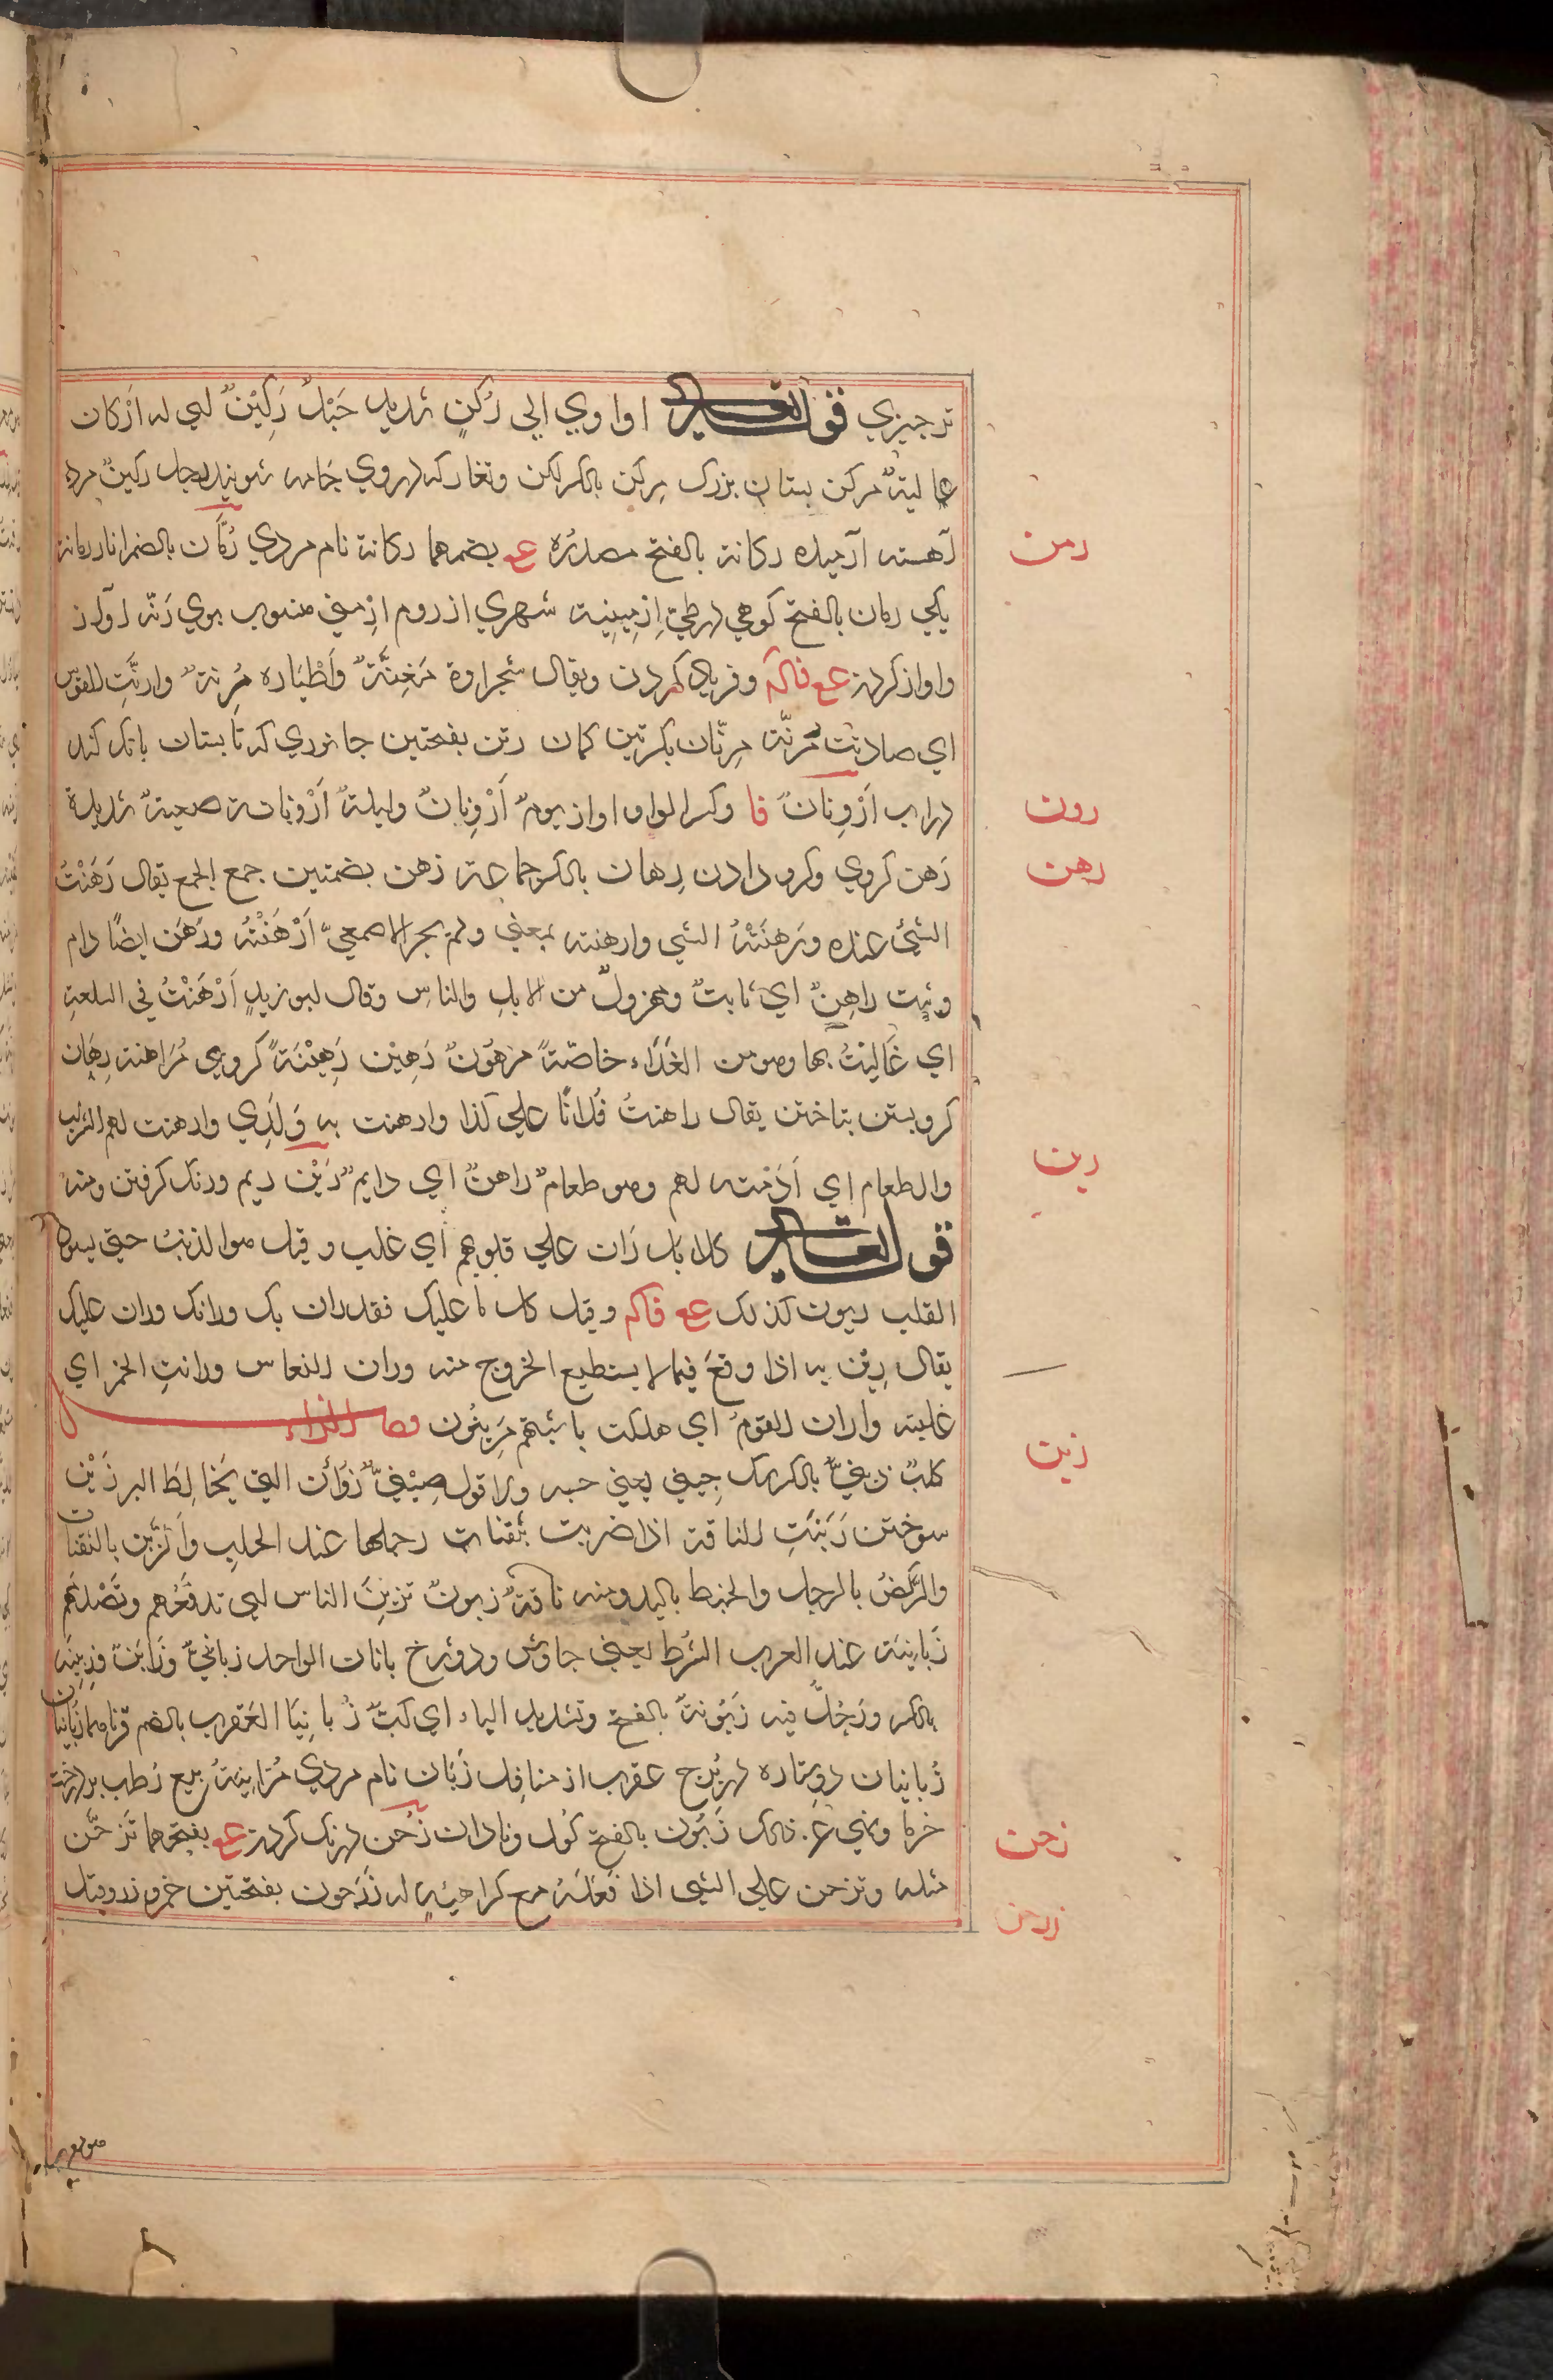 ترچيزي قوله تعالى اواوي الي رُكنٍ شديد جَبَلٌ رَكِيْنٌ اي له ارْكان
عالية مركن بستان بزرك مِركن بالكر لكن وتغار كه در وي جامه شويند رجل ركينٌ مرد
آهسته آرميده ركانة بالفتح مصدرُه عـ بضمهما ركانة نام مردي رُمّان بالضم انار رمانة
يكي رمان بالفتح كوهي در طي اِرمِينِية شهري از روم اِرمِني منسوب بوي رَنّه آواز
واواز كردن عع فاكم وفرياد كردن ويقال شجراوة مُغِنَّةٌ وَاَطْيَاره مُرِنةٌ وارنَّتِ القوس
اي صاتت مُرنّة مِرنّان بكرتين كمان رنن بفتحتين جانوري كه تابستان بانك كند
در اب اَرْوِنانٌ فا وكسر الواو اواز يومٌ اَرْوِنانٌ وليلةٌ اَرْوِنانة صعبةٌ شديدة
رَهن كروي وكرو دادن رِهان بالكر جماعة رهن بضمتين جمع الجمع يقال رَهَنْتُ
الشئ عنده ورَهنَتْهُ الشي وارهنته بمعني ولم يجز الاصمعيّ اَرْهَنْتُه ورَهَن ايضًا دام
وثبت راهِنٌ اي ثابتٌ ومهزولٌ من الابلِ والناسِ وقال ابوزيدٍ اَرْهَنْتُ في السلعةِ
اي غَاليتُ بها وهو من الغَلَاء خاصّةً مرهُونٌ رَهِيْن رَهِيْنَةً كروي مُرَاهنة رِهَان
كروبستن بتاختن يقال راهنتُ فُلانًا علي كذا وارهنت به وَلَدِي وارهنت لهم الشراب
والطعام اي اَدَمته لهم وهو طعامٌ راهنٌ اي دايمٌ رَيْن ريم وزنك كرفتن ومنه
قوله تعالى كلا بل رَان علي قلوبهم اي غلب وقيل هوا لذنبُ حتي يسود
القلب ريون كذلك عع فاكم وقيل كل ما عليك فقد ران بك ورانك وران عليك
يقال رِيْن به اذا وقعَ فيما لا يستطيع الخروج منه وران النعاس ورانتِ الخمر اي
غلبته واران القومُ اي هلكت ماشيتهم مُرِيْنُون فصل الزاء
كلبٌ زِيْنيٌّ بالكر سك چيني يعني حبه ولا تقول صِيْنيّ زُؤان التي يخالِطُ البر زَبْن
سوختن زَبَنَتِ الناقة اذا ضربت بثفنات رجلها عند الحلبِ والزَّبْن بالثفنات
والرَّكضُ بالرجل والخبط باليد ومنه ناقةٌ زبونٌ تزبِنُ الناس اي تدفَعُهم وتَصْدِمهم
زَبانِيَة عند العرب الشُرط يعني جاوش ودوزخ بانان الواحد زبانيٌ وزَابنٌ وزِبنِيَه
بالكر ورَجُلٌ فيه زَبُّونةٌ بالفتح وتشديد الباء اي كبرٌ زُبانِيَا العَقرب بالضم قرناهما زُبَانيان
زُبانيان دو ستاره در بُرج عقرب از منازِل زَبّان نام مردي مُزابنةٌ بيع رُطب بر درخت
خرما ونهي عن ذلك زَبُون بالفتح كَول ونادان زَحن درنك كردن عع بفتحهما تَزَحُّن
مثله وتزحن علي الشئ اذا فَعَلَهُ مع كراهيةٍ له زَرَجون بفتحتين خمر وزر وقيل
رمن
رون
رهن
رين
زبن
زحن
زرجن